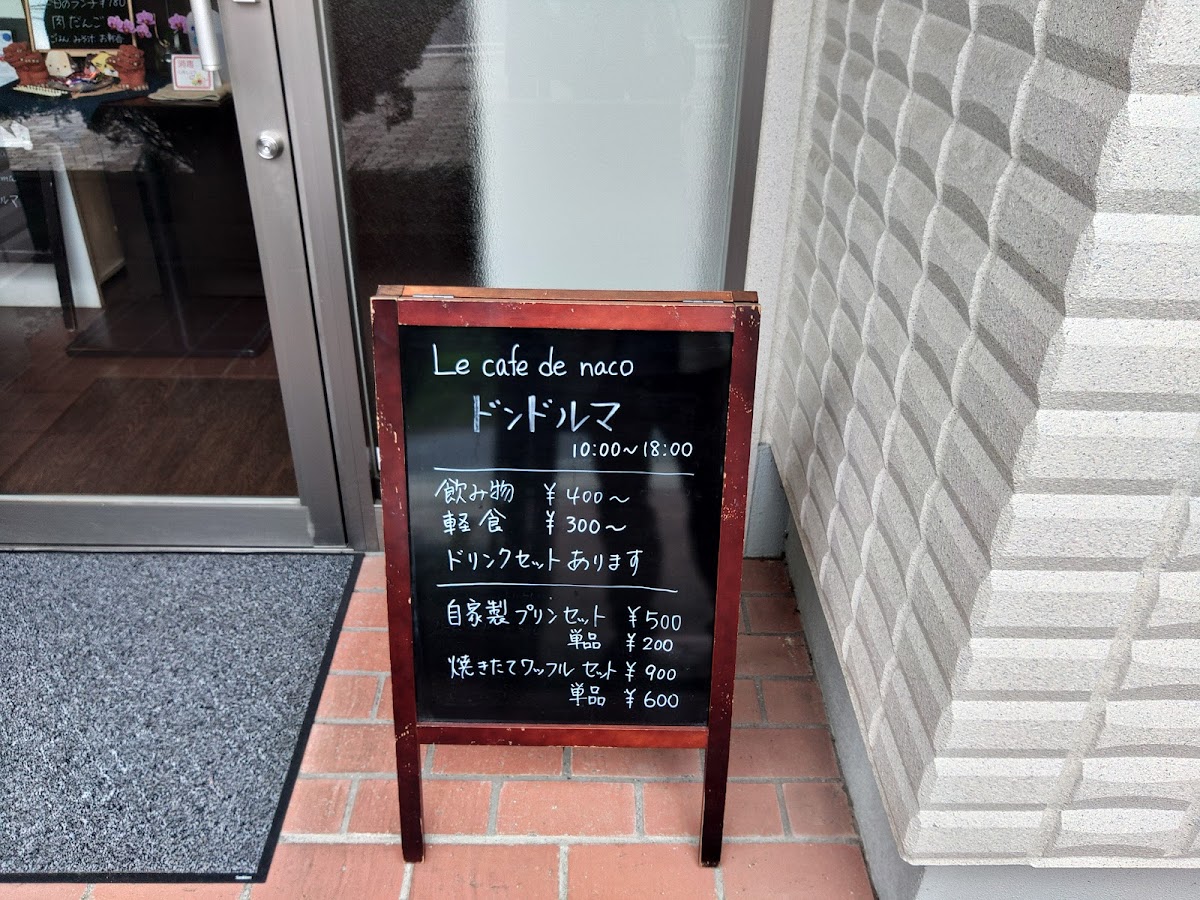 日のランチ ¥780
肉だんご
ごはん みそ汁 お新香
Le cafe de naco
ドンドルマ
10:00～18:00
飲み物 ¥400～
軽食 ¥300～
ドリンクセットあります
自家製プリンセット ¥500
単品 ¥200
焼きたてワッフル セット ¥900
単品 ¥600